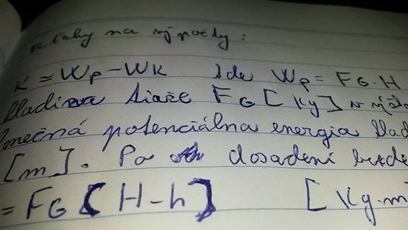 vzťahy na výpočty:
K = Wp - WK kde Wp = FG.H
tiaže FG [Kg] v
konečná potenciálna energia
[m]. Po dosadení bude
= FG [H-h] [Kg.m